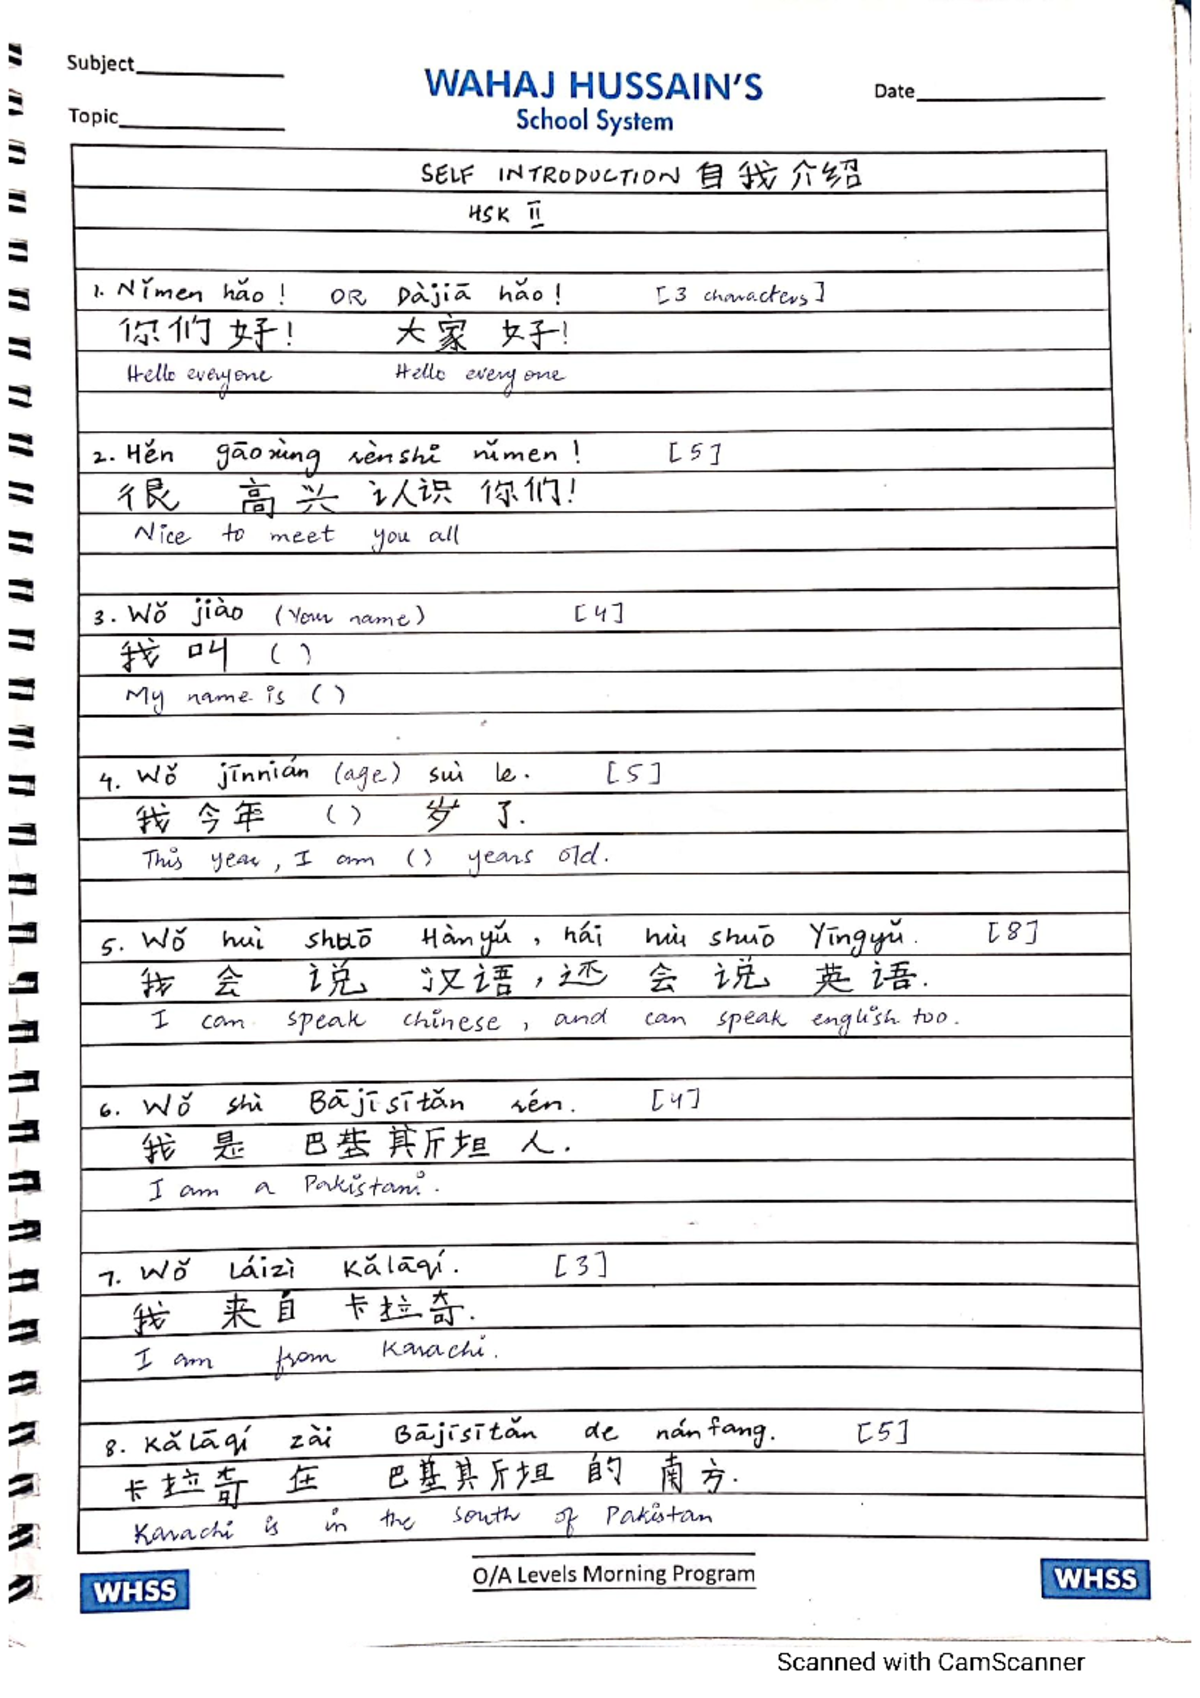 Subject
WAHAJ HUSSAIN'S
Date
Topic
School System
SELF INTRODUCTION 自我介绍
HSK II
1. Nǐmen hǎo! OR Dàjiā hǎo! [3 characters]
你们好! 大家好!
Hello everyone Hello everyone
2. Hěn gāoxìng rènshi nǐmen! [5]
很 高兴 认识 你们!
Nice to meet you all
3. Wǒ jiào (Your name) [4]
我 叫 ( )
My name is ( )
4. Wǒ jīnnián (age) suì le. [5]
我 今年 ( ) 岁 了.
This year, I am ( ) years old.
5. Wǒ huì shuō Hànyǔ, hái huì shuō Yīngyǔ. [8]
我 会 说 汉语, 还 会 说 英语.
I can speak chinese, and can speak english too.
6. Wǒ shì Bājīsītǎn rén. [4]
我 是 巴基其斤坦 人.
I am a Pakistani.
7. Wǒ Láizì Kǎlāqí. [3]
我 来自 卡拉奇.
I am from Karachi.
8. Kǎlāqí zài Bājīsītǎn de nánfang. [5]
卡拉奇 在 巴基其斤坦 的 南方.
Karachi is in the south of Pakistan
WHSS
O/A Levels Morning Program
WHSS
Scanned with CamScanner